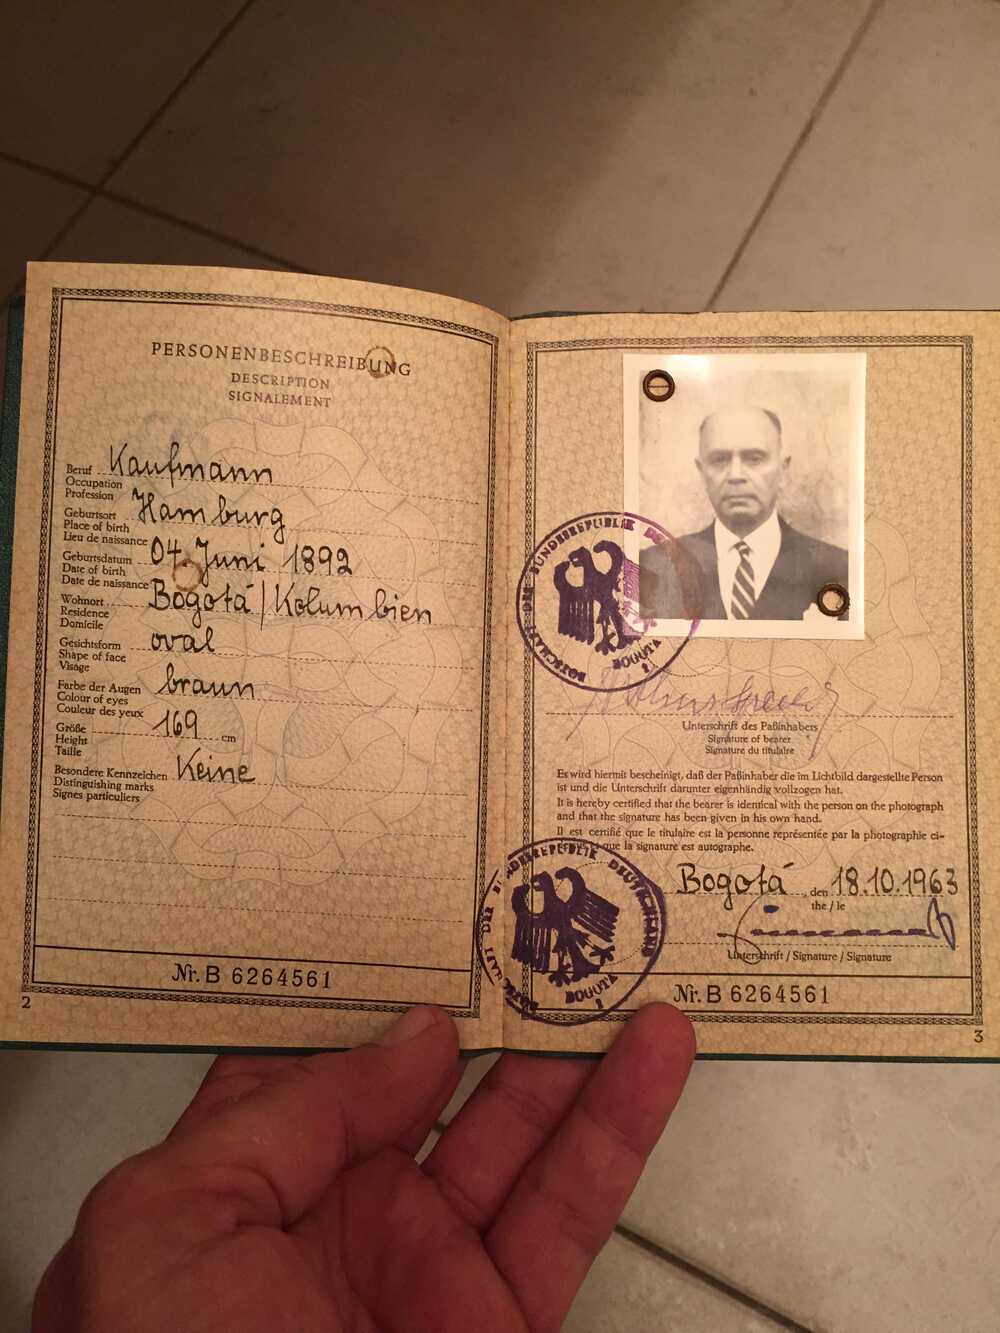 PERSONENBESCHREIBUNG
DESCRIPTION
SIGNALEMENT
Beruf Kaufmann
Occupation
Profession
Geburtsort Hamburg
Place of birth
Lieu de naissance
Geburtsdatum 04. Juni 1892
Date of birth
Date de naissance
Wohnort Bogotá/Kolumbien
Residence
Domicile
Gesichtsform oval
Shape of face
Visage
Farbe der Augen braun
Colour of eyes
Couleur des yeux
Größe 169 cm
Height
Taille
Besondere Kennzeichen Keine
Distinguishing marks
Signes particuliers
Nr. B 6264561
2
BOTSCHAFT DER BUNDESREPUBLIK DEUTSCHLAND
BOGOTA
1
Unterschrift des Paßinhabers
Signature of bearer
Signature du titulaire
Es wird hiermit bescheinigt, daß der Paßinhaber die im Lichtbild dargestellte Person
ist und die Unterschrift darunter eigenhändig vollzogen hat.
It is hereby certified that the bearer is identical with the person on the photograph
and that the signature has been given in his own hand.
Il est certifié que le titulaire est la personne représentée par la photographie ci-
que la signature est autographe.
Bogotá, den 18.10.1963
the / le
Unterschrift / Signature / Signature
BOTSCHAFT DER BUNDESREPUBLIK DEUTSCHLAND
BOGOTA
1
Nr. B 6264561
3